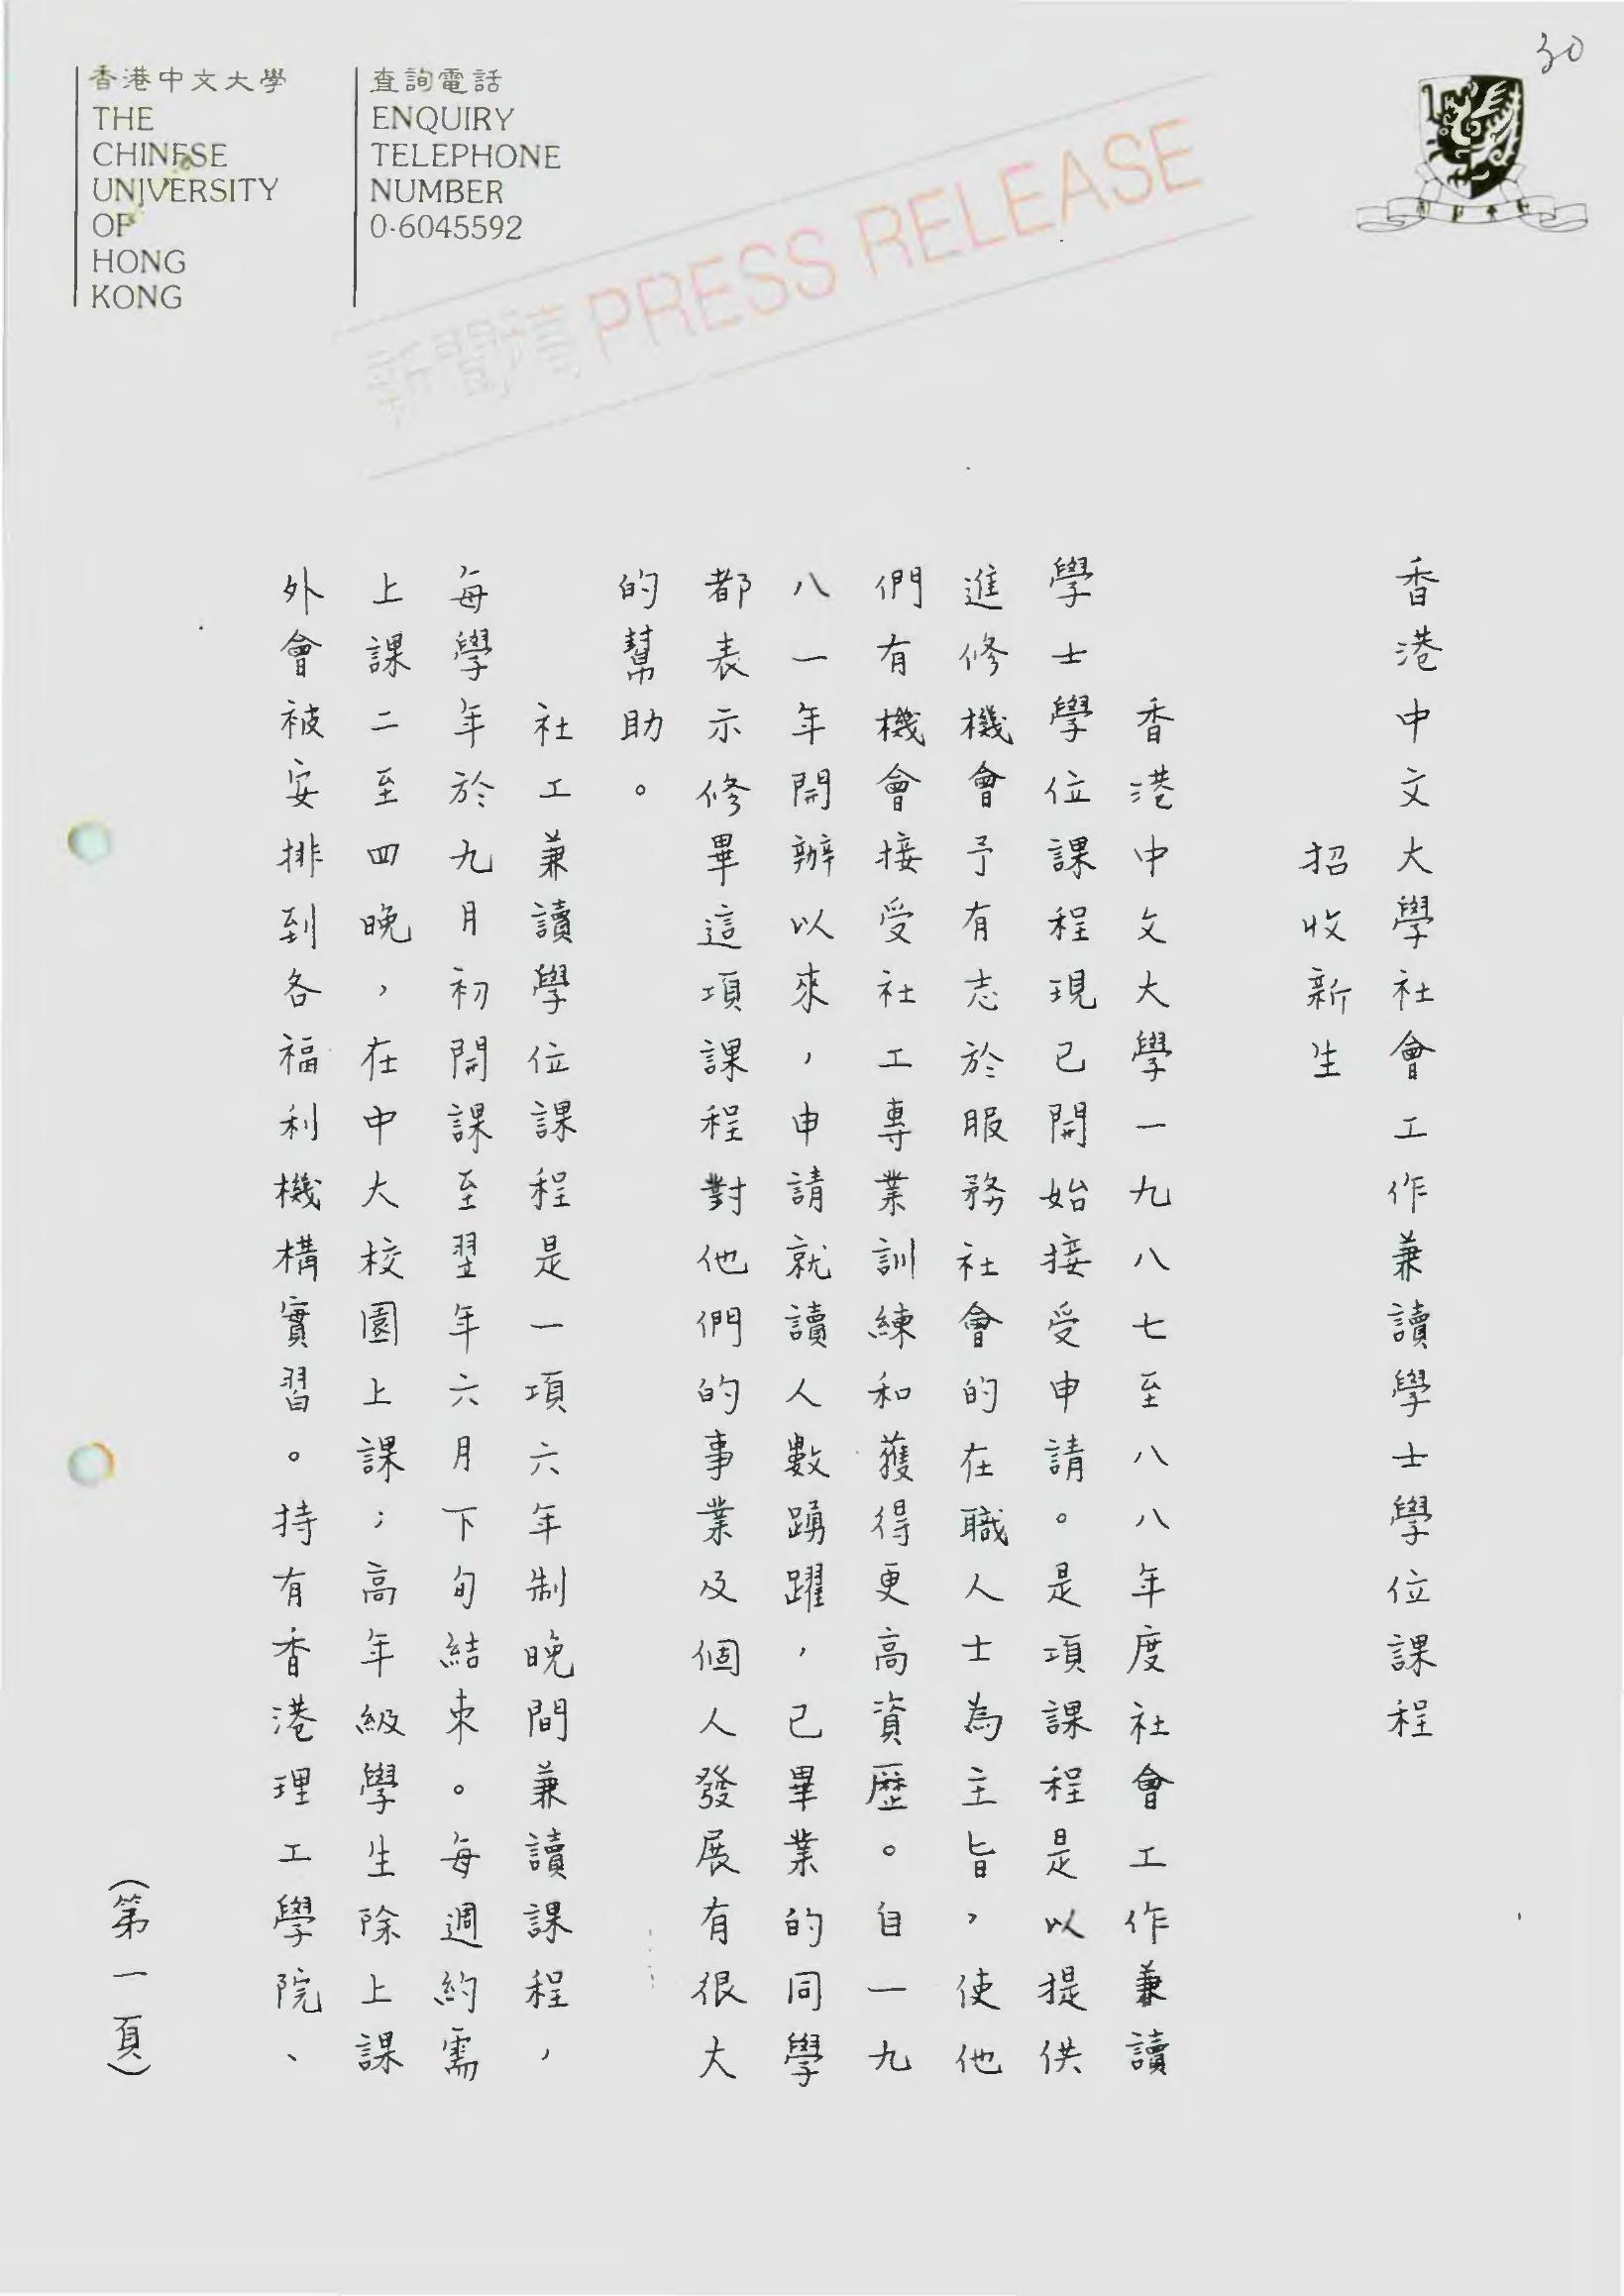 30
香港中文大學
THE
CHINESE
UNIVERSITY
OF
HONG
KONG
查詢電話
ENQUIRY
TELEPHONE
NUMBER
0-6045592
新聞稿 PRESS RELEASE
香港中文大學社會工作兼讀學士學位課程
招收新生
香港中文大學一九八七至八八年度社會工作兼讀
學士學位課程現已開始接受申請。是項課程是以提供
進修機會予有志於服務社會的在職人士為主旨，使他
們有機會接受社工專業訓練和獲得更高資歷。自一九
八一年開辦以來，申請就讀人數踴躍，已畢業的同學
都表示修畢這項課程對他們的事業及個人發展有很大
的幫助。
社工兼讀學位課程是一項六年制晚間兼讀課程，
每學年於九月初開課至翌年六月下旬結束。每週約需
上課二至四晚，在中大校園上課；高年級學生除上課
外會被安排到各福利機構實習。持有香港理工學院、
（第一頁）